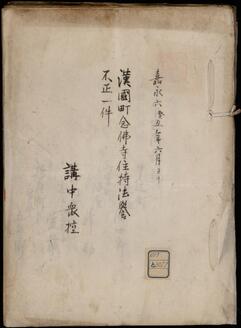 嘉永六癸丑年六月ヨリ
漢國町念佛寺住持法誉
不正一件
講中衆控